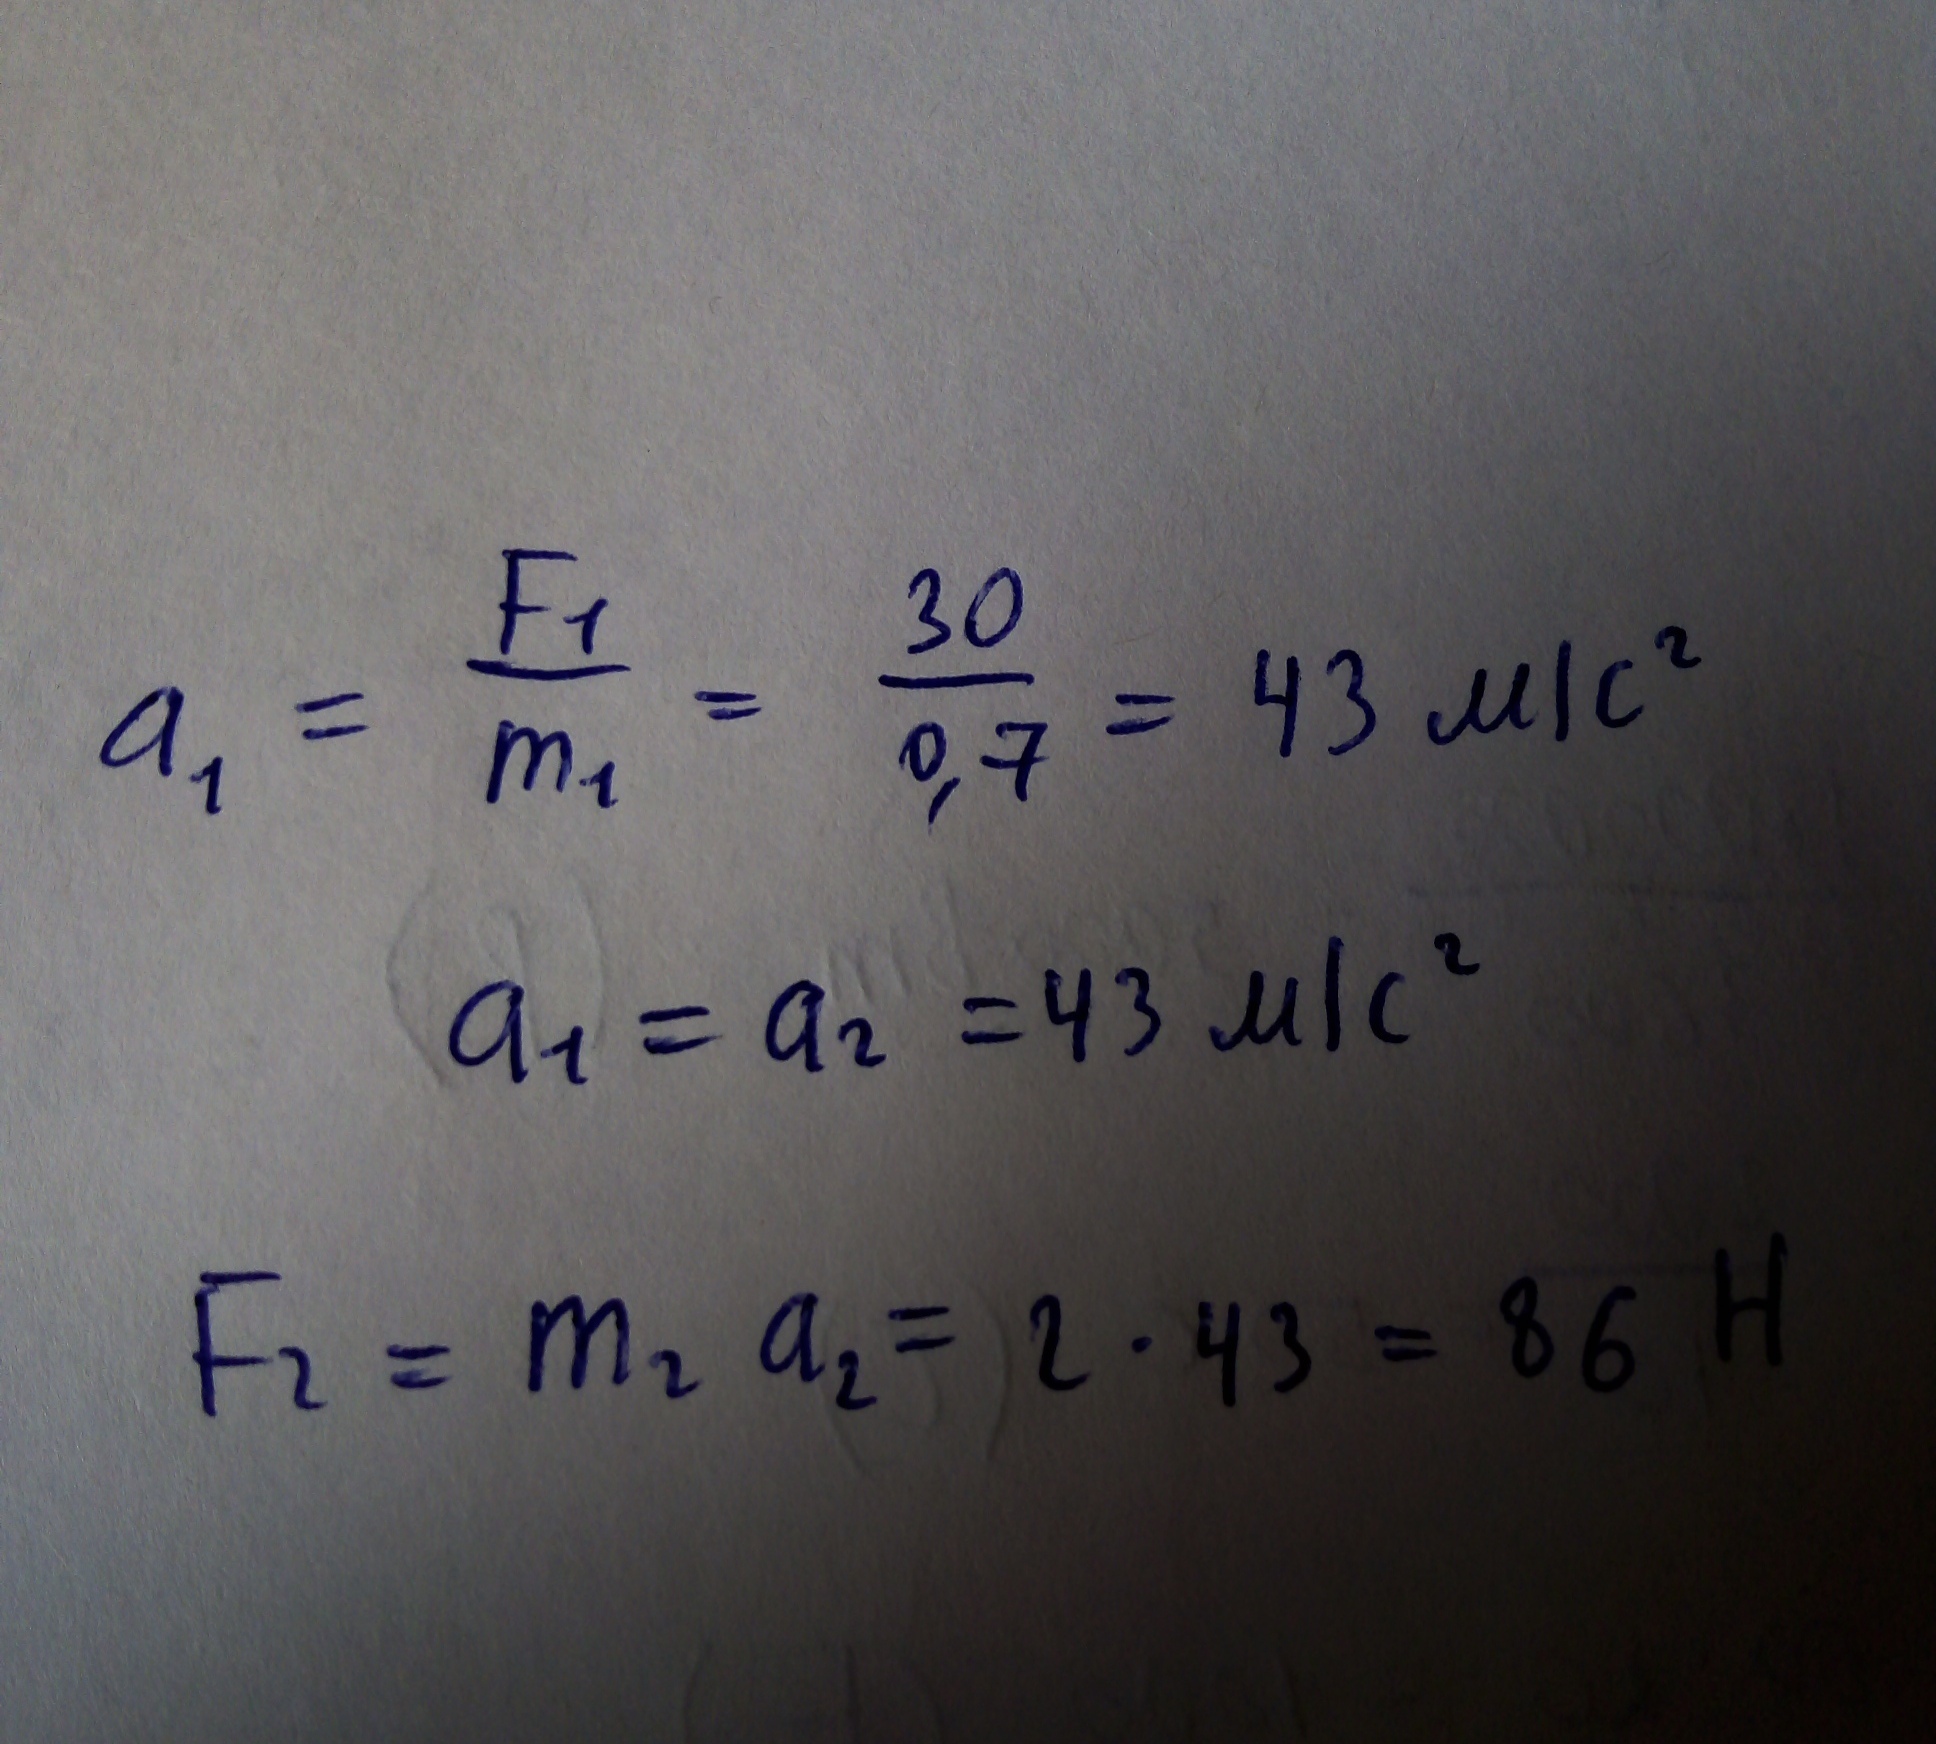 a₁ = F₁/m₁ = 30/0,7 = 43 м/с²
a₁ = a₂ = 43 м/с²
F₂ = m₂ a₂ = 2 · 43 = 86 Н